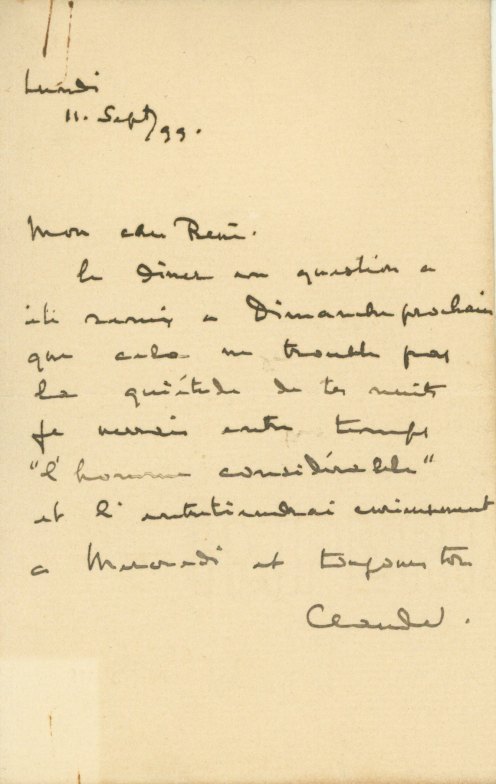 Lundi
11. Sept/99.
Mon cher René.
le diner en question a
été remis a Dimanche prochain
que cela ne trouble pas
la quiétude de tes nuits
je verrais entre temps
"l'homme considérable"
et l'entretiendrai curieusement
a Mercredi et toujours ton
Claude.